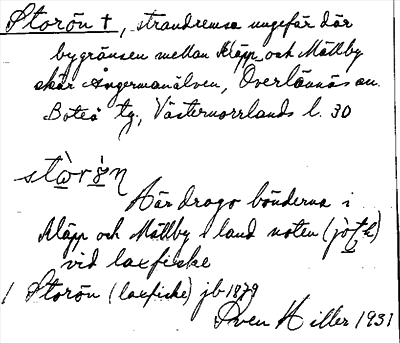 Storön †, strandremsa ungefär där
bygränsen mellan Kläpp och Mällby
skär Ångermanälven, Överlännäs sn.
Boteå tg., Västernorrlands l. 30
Här drogo bönderna i
Kläpp och Mällby i land noten
vid laxfiske
1 Storön (laxfiske) jb 1879
Sven Hiller 1931